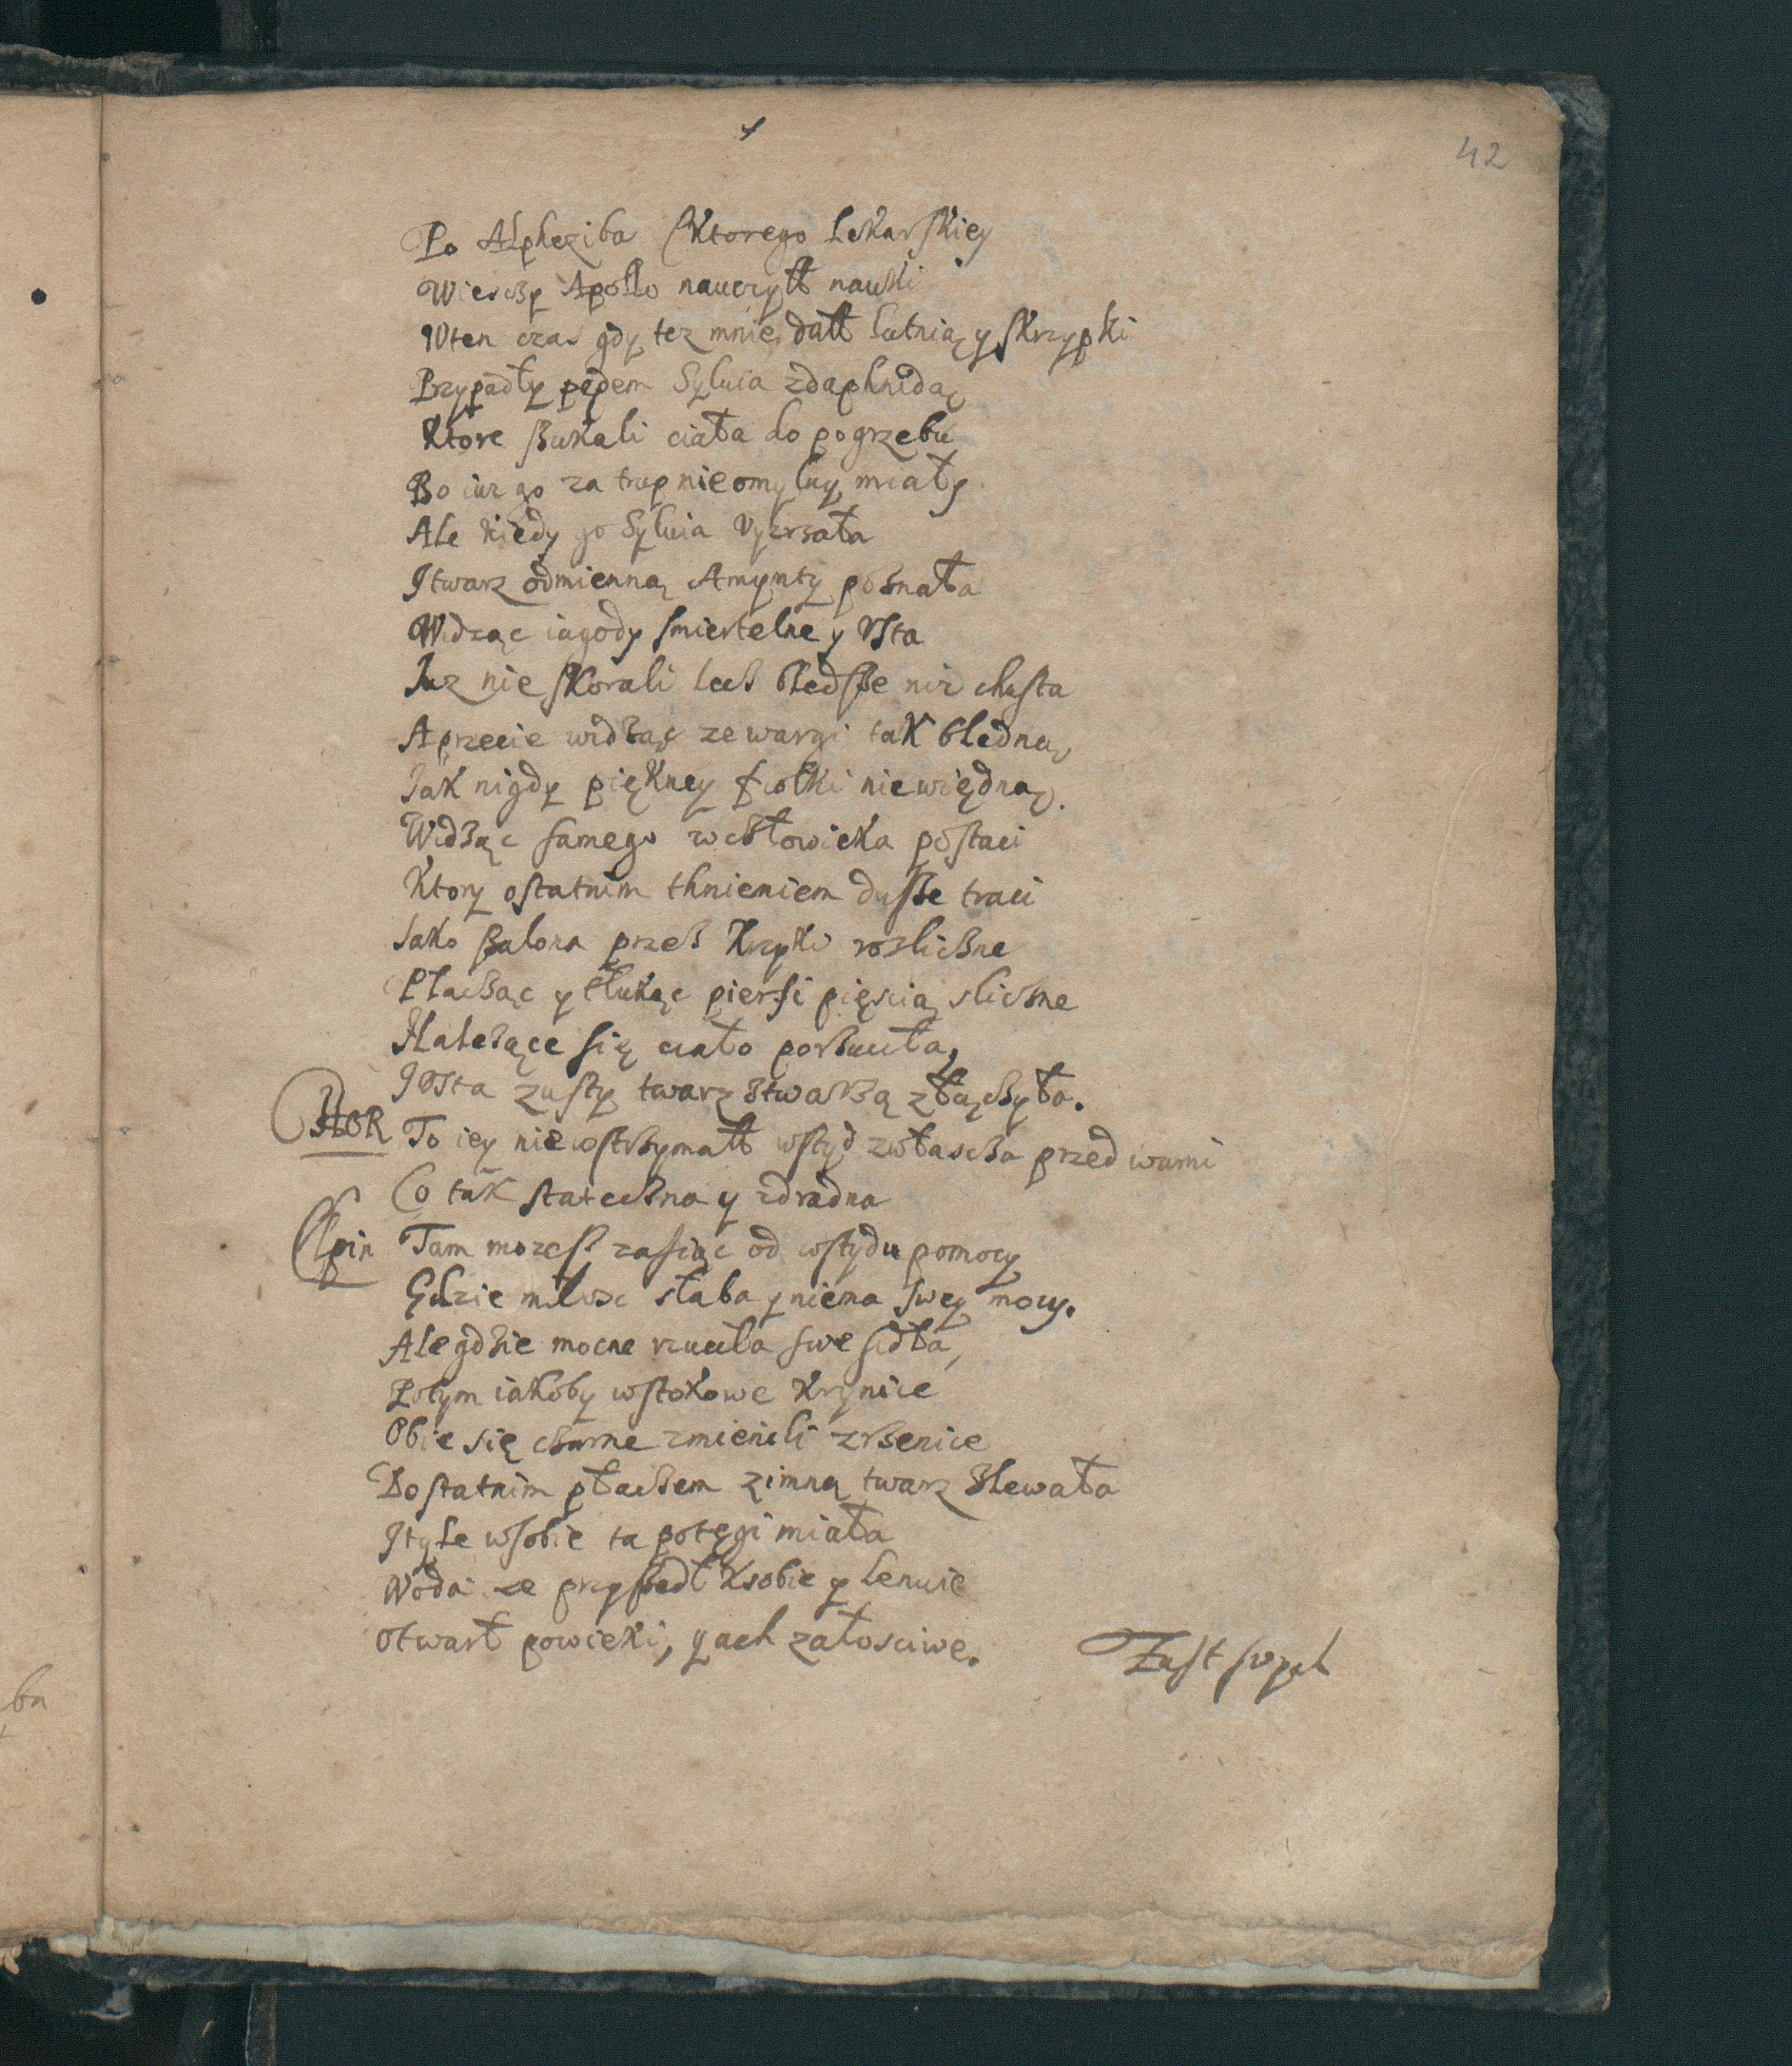 42
Po Alpheziba (Ktorego Lekarskiey
Wiescży Apollo nauczył nauki
Wten czas gdy tez mnie dałł lutnią y skrzypki
Przypadły pędem Sylvia zdaphnidą
Ktore szukali ciała do pogrzebu
Bo iuz go za trup nieomylny miały
Ale kiedy go Sylvia Vyzrzała
I twarz odmienną Amynty poznała
Widząc iagody smiertelne y Usta
Juz nie skorali lecz bledsze niz chusta
A przecie widząc ze wargi tak bledną
Jak nigdy piękney fiołki niewiędną.
Widząc samego w człowieka postaci
Ktory ostatnim tknieniem dusze traci
Jako szalona przez krzyki rozliczne
Płacząc y tłukąc piersi pięscią sliczne
Należące się ciało porzuciła,
I Usta zusty twarz ztwarzą złączyła.
Chor To iey niewstrzymałł wstyd zwłascza przed wami
Co tak stateczna y zdradna
Elpin Tam mozesz zasiąc od wstydu pomocy
Gdzie miłosc słaba y niema swey mocy.
Ale gdzie mocne rzuciła swe sidła,
Potym iakoby wstokowe krynice
Obie się czarne zmienili zrzenice
Dostatnim płaczem zimną twarz zlewała
I tyle wsobie ta potęgi miała
Woda ze przyszedł ksobie y leniwie
Otwarł powieki, y ach załosciwe.
bu